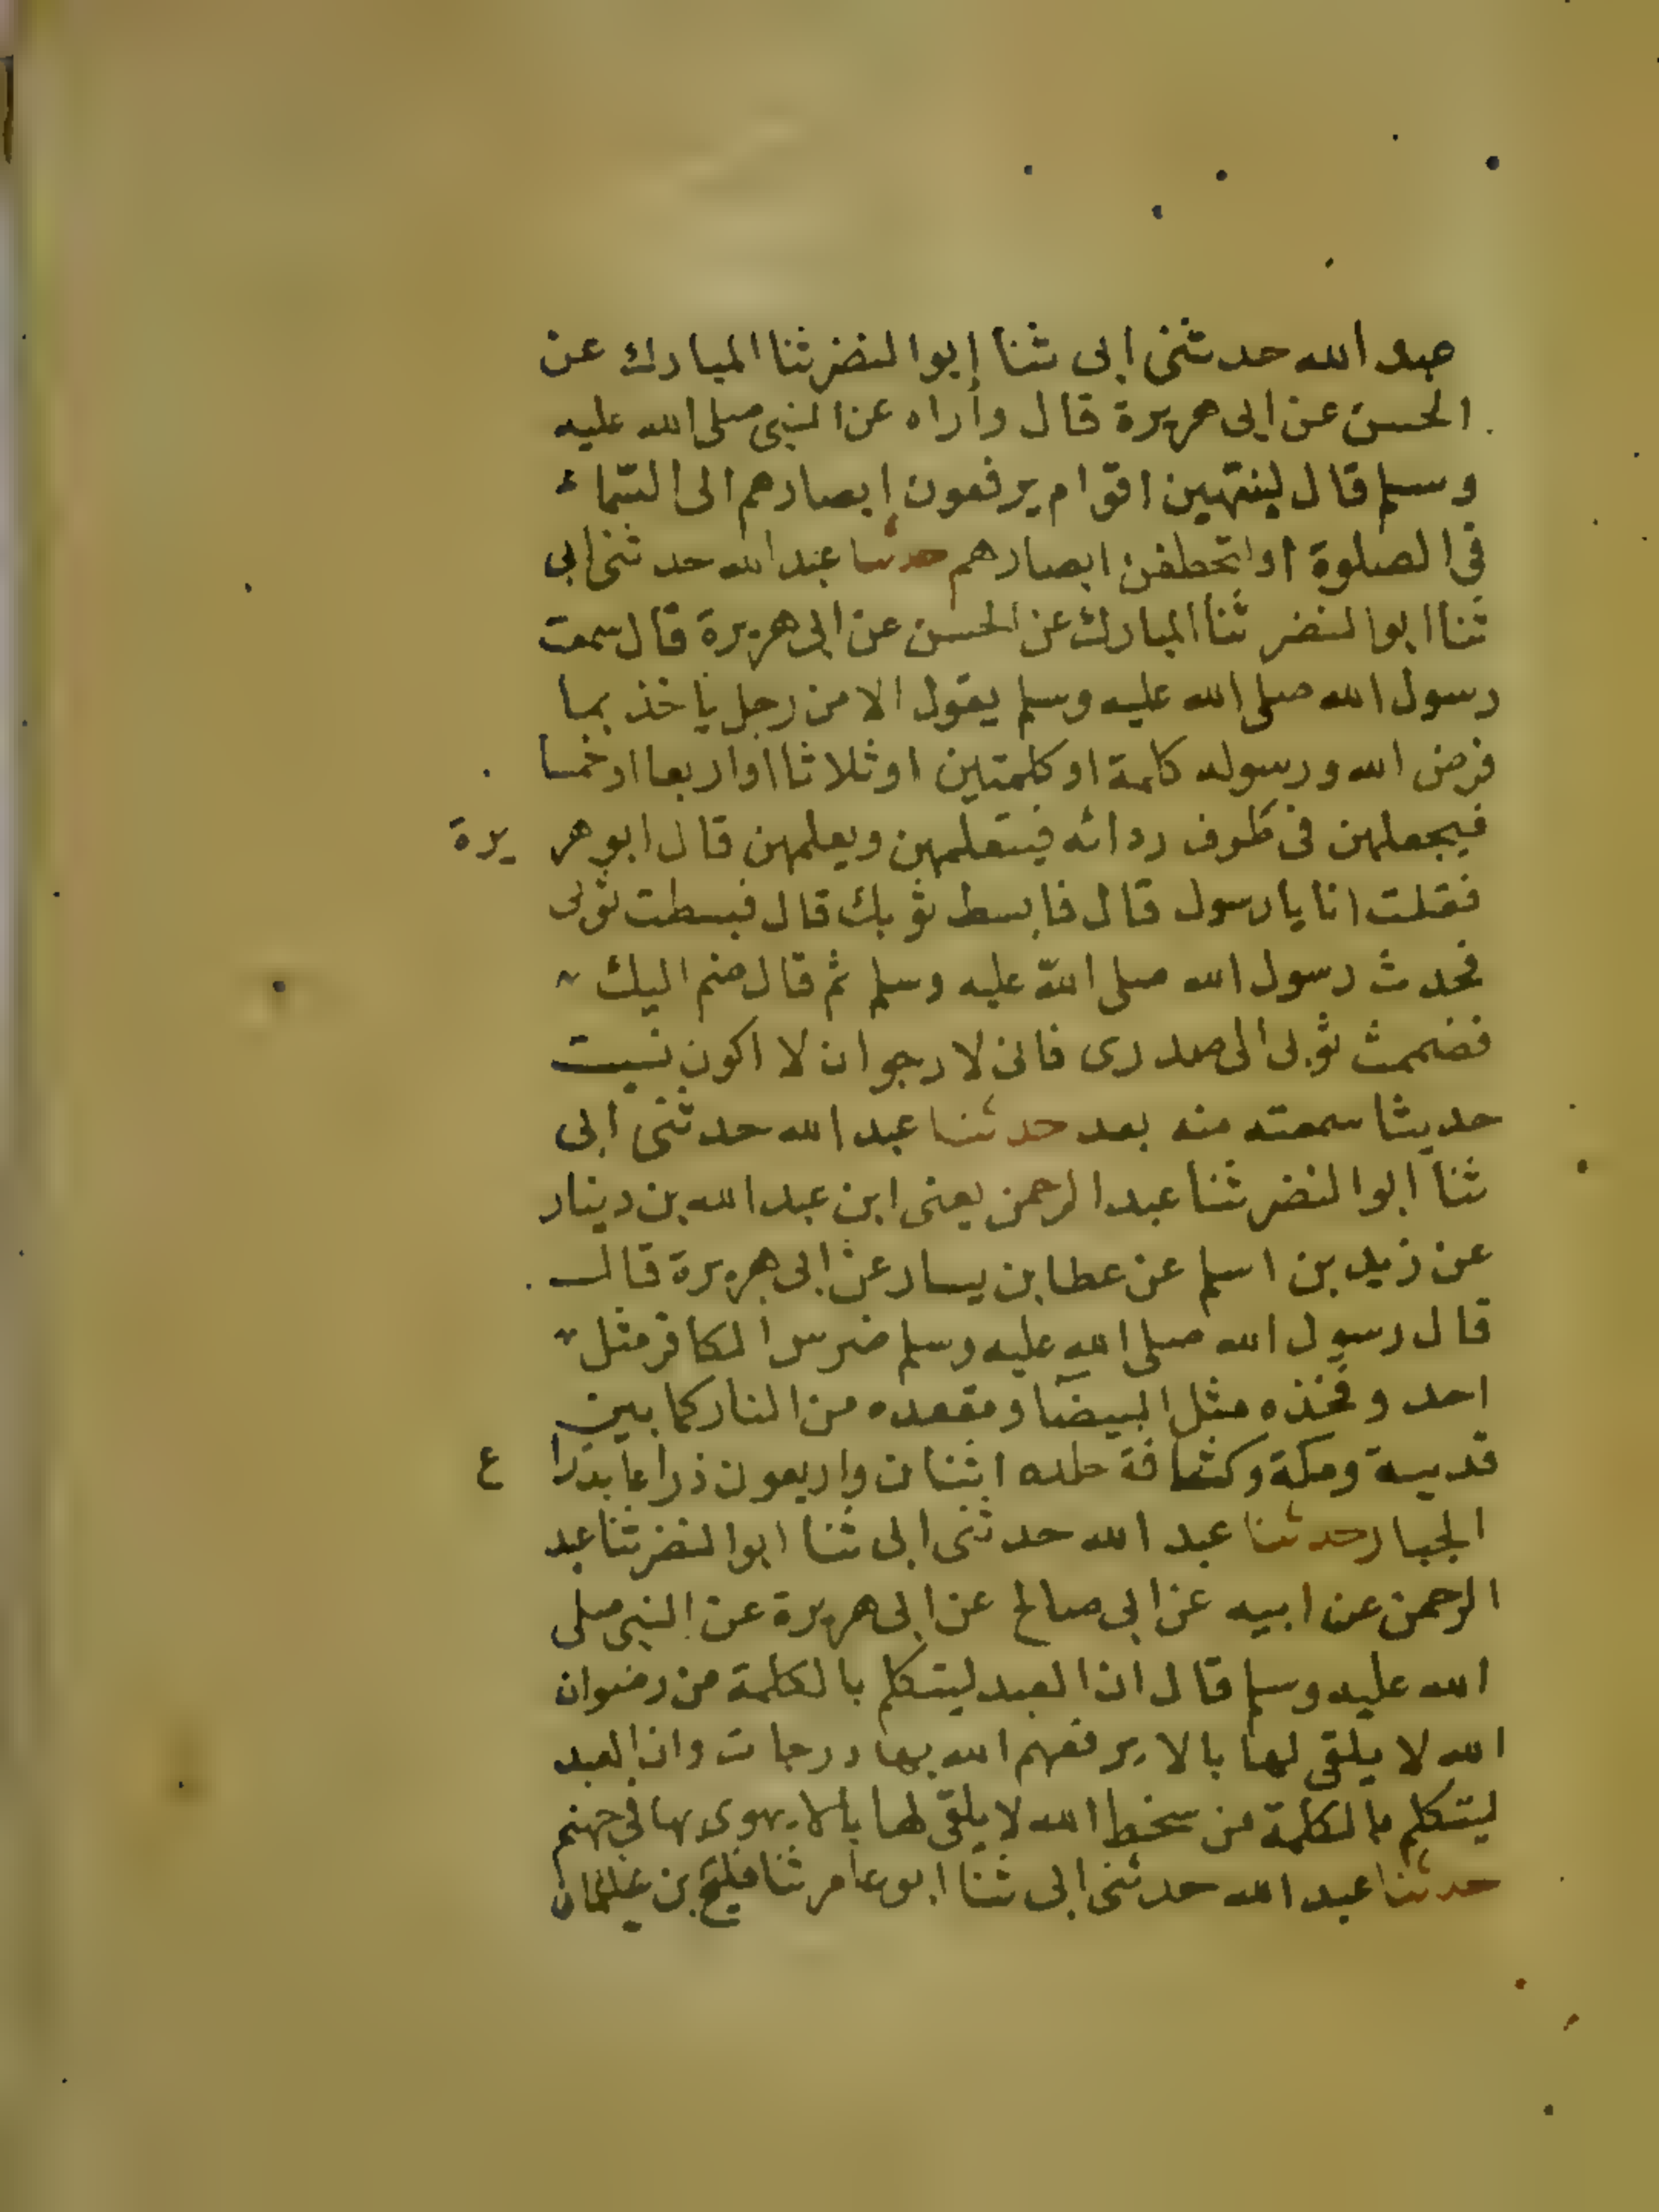 عبد الله حدثنى ابى ثنا ابو النضر ثنا المبارك عن
الحسن عن ابى هريرة قال وأراه عن النبى صلى الله عليه
وسلم قال لينتهين اقوام يرفعون ابصارهم الى السّماء
في الصلوة او لتخطفن ابصارهم حدثنا عبد الله حدثنى ابى
ثنا ابو النضر ثنا المبارك عن الحسن عن ابى هريرة قال سمعت
رسول الله صلى الله عليه وسلم يقول الا من رجل ياخذ بما
فرض الله ورسوله كلمة او كلمتين او ثلاثا او اربعا او خمسا
فيجعلهن فى طرف ردائه فيتعلمهن ويعلمهن قال ابو هر يرة
فقلت انا يا رسول قال فابسط ثوبك قال فبسطت ثوبى
فحدث رسول الله صلى الله عليه وسلم ثم قال ضم اليك
فضممت ثوبى الى صدرى فانى لارجو ان لا اكون نسيت
حديثا سمعته منه بعد حدثنا عبد الله حدثنى ابى
ثنا ابو النضر ثنا عبد الرحمن يعنى ابن عبد الله بن دينار
عن زيد بن اسلم عن عطا بن يسار عن ابى هريرة قال
قال رسول الله صلى الله عليه وسلم ضرس الكافر مثل
احد وفخذه مثل البيضآ ومقعده من النار كما بين
قديد ومكة وكثافة جلده اثنان واربعون ذراعا بذرا ع
الجبار حدثنا عبد الله حدثنى ابى ثنا ابو النضر ثنا عبد
الرحمن عن ابيه عن ابى صالح عن ابى هريرة عن النبى صلى
الله عليه وسلم قال ان العبد ليتكلم بالكلمة من رضوان
الله لا يلقى لها بالا يرفعهم الله بها درجات وان العبد
ليتكلم بالكلمة من سخط الله لا يلقى لها بالا يهوى بها في جهنم
حدثنا عبد الله حدثنى ابى ثنا ابو عامر ثنا فليح بن سليمان